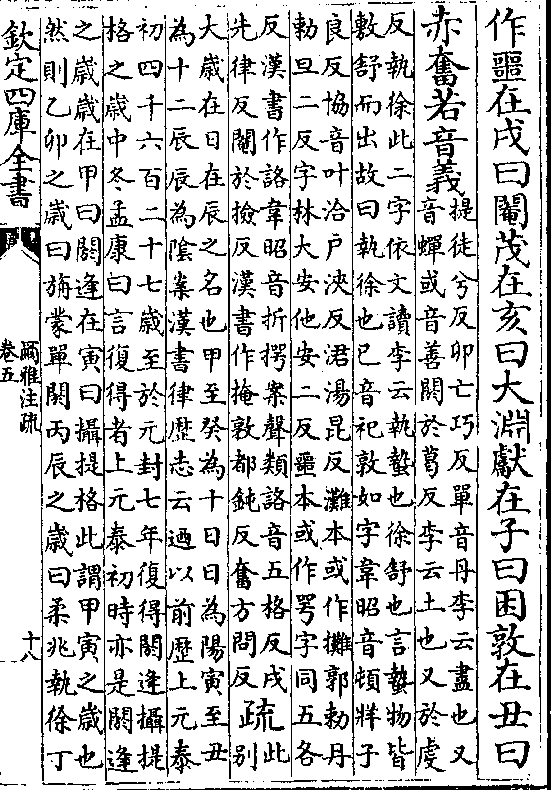 作噩在戌曰閹茂在亥曰大淵獻在子曰困敦在丑曰
赤奮若音義提徒兮反卯亡巧反單音丹李云盡也又
音蟬或音善閼於葛反李云土也又於虔
反執徐此二字依文讀李云執蟄也徐舒也言蟄物皆
敷舒而出故曰執徐也巳音祀敦如字韋昭音頓牂子
良反協音叶洽户浹反涒湯昆反灘本或作攤郭勑丹
勅旦二反字林大安他安二反噩本或作咢字同五各
反漢書作詻韋昭音折㮙案聲類詻音五格反戌
先律反閹於撿反漢書作掩敦都鈍反奮方問反疏此别
大歲在日在辰之名也甲至癸為十日日為陽寅至丑
為十二辰辰為隂案漢書律歷志云迺以前歷上元泰
初四千六百二十七歲至於元封七年復得閼逢攝提
格之歲中冬孟康曰言復得者上元泰初時亦是閼逢
之歲歲在甲曰閼逢在寅曰攝提格此謂甲寅之歲也
然則乙卯之歲曰旃蒙單閼丙辰之歲曰柔兆執徐丁
欽定四庫全書
爾雅注疏
卷五
十八